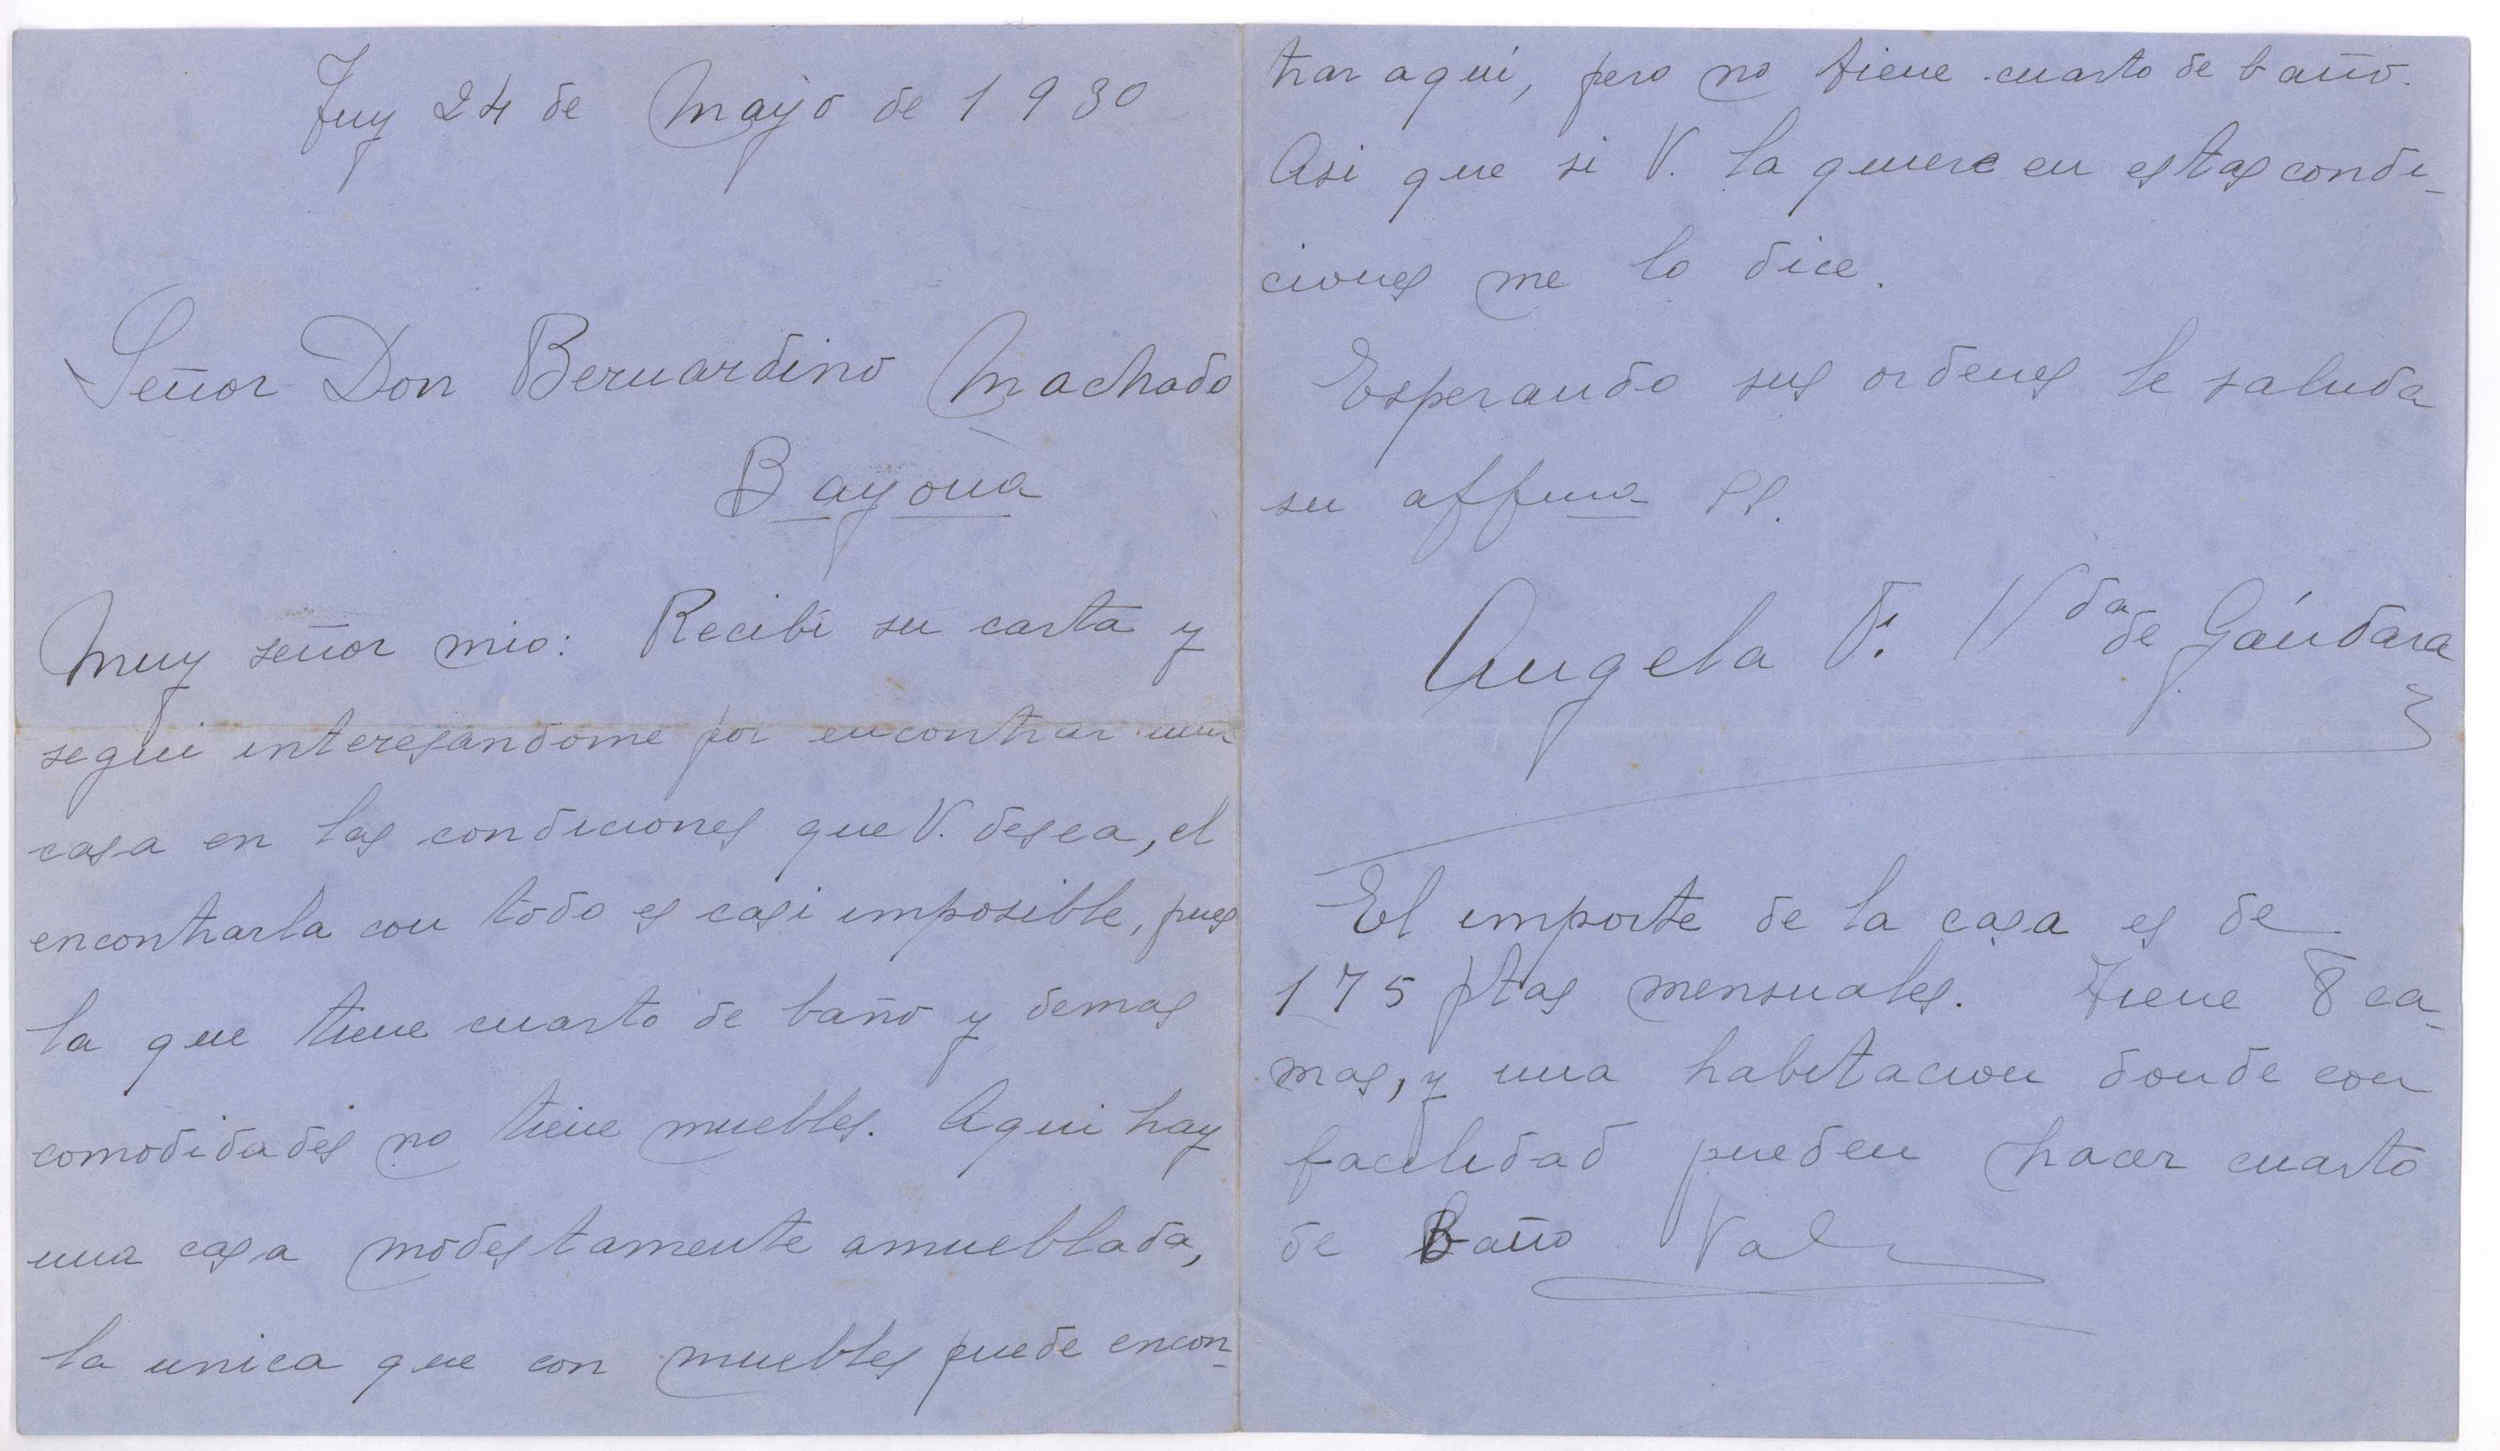 Tuy 24 de Mayo de 1930
Señor Don Bernardino Machado
Bayona
Muy señor mio: Recibí su carta y
segui interesandome por encontrar una
casa en las condiciones que V. desea, el
encontrarla con todo es casi imposible, pues
la que tiene cuarto de baño y demas
comodidades no tiene muebles. Aqui hay
una casa modestamente amueblada,
la unica que con muebles puede encon-
trar aquí, pero no tiene cuarto de baño.
Asi que si V. la quiere en estas condi-
ciones me lo dice.
Esperando sus ordenes le saluda
su affma SS.
Angela F. Vda de Gándara
El importe de la casa es de
175 ptas mensuales. Tiene 8 ca-
mas, y una habitacion donde con
facilidad pueden hacer cuarto
de Baño Vale